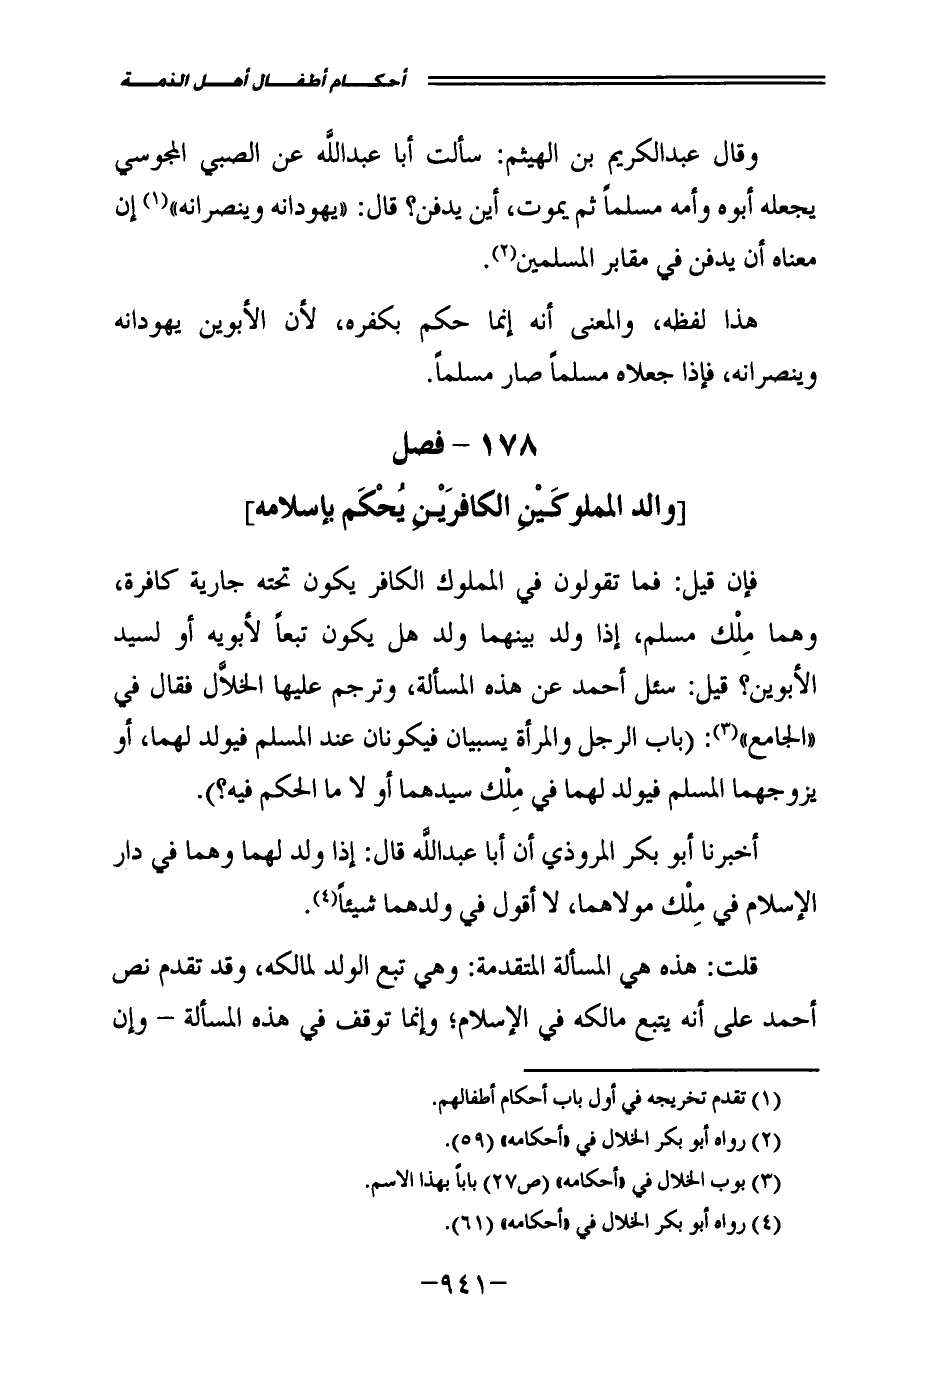 أحكام أطفال أهل الذمة
وقال عبدالكريم بن الهيثم: سألت أبا عبداللَّه عن الصبي المجوسي
يجعله أبوه وأمه مسلماً ثم يموت، أين يدفن؟ قال: «يهودانه وينصرانه»(١) إن
معناه أن يدفن في مقابر المسلمين(٢).
هذا لفظه، والمعنى أنه إنما حكم بكفره، لأن الأبوين يهودانه
وينصرانه، فإذا جعلاه مسلماً صار مسلماً.
١٧٨ - فصل
[والد المملوكَيْنِ الكافرَيْنِ يُحْكَم بإسلامه]
فإن قيل: فما تقولون في المملوك الكافر يكون تحته جارية كافرة،
وهما مِلْك مسلم، إذا ولد بينهما ولد هل يكون تبعاً لأبويه أو لسيد
الأبوين؟ قيل: سئل أحمد عن هذه المسألة، وترجم عليها الخلاَّل فقال في
«الجامع»(٣): (باب الرجل والمرأة يسبيان فيكونان عند المسلم فيولد لهما، أو
يزوجهما المسلم فيولد لهما في مِلْك سيدهما أو لا ما الحكم فيه؟).
أخبرنا أبو بكر المروذي أن أبا عبداللَّه قال: إذا ولد لهما وهما في دار
الإسلام في مِلْك مولاهما، لا أقول في ولدهما شيئاً(٤).
قلت: هذه هي المسألة المتقدمة: وهي تبع الولد لمالكه، وقد تقدم نص
أحمد على أنه يتبع مالكه في الإسلام؛ وإنما توقف في هذه المسألة - وإن
(١) تقدم تخريجه في أول باب أحكام أطفالهم.
(٢) رواه أبو بكر الخلال في «أحكامه» (٥٩).
(٣) بوب الخلال في «أحكامه» (ص٢٧) باباً بهذا الاسم.
(٤) رواه أبو بكر الخلال في «أحكامه» (٦١).
-٩٤١-